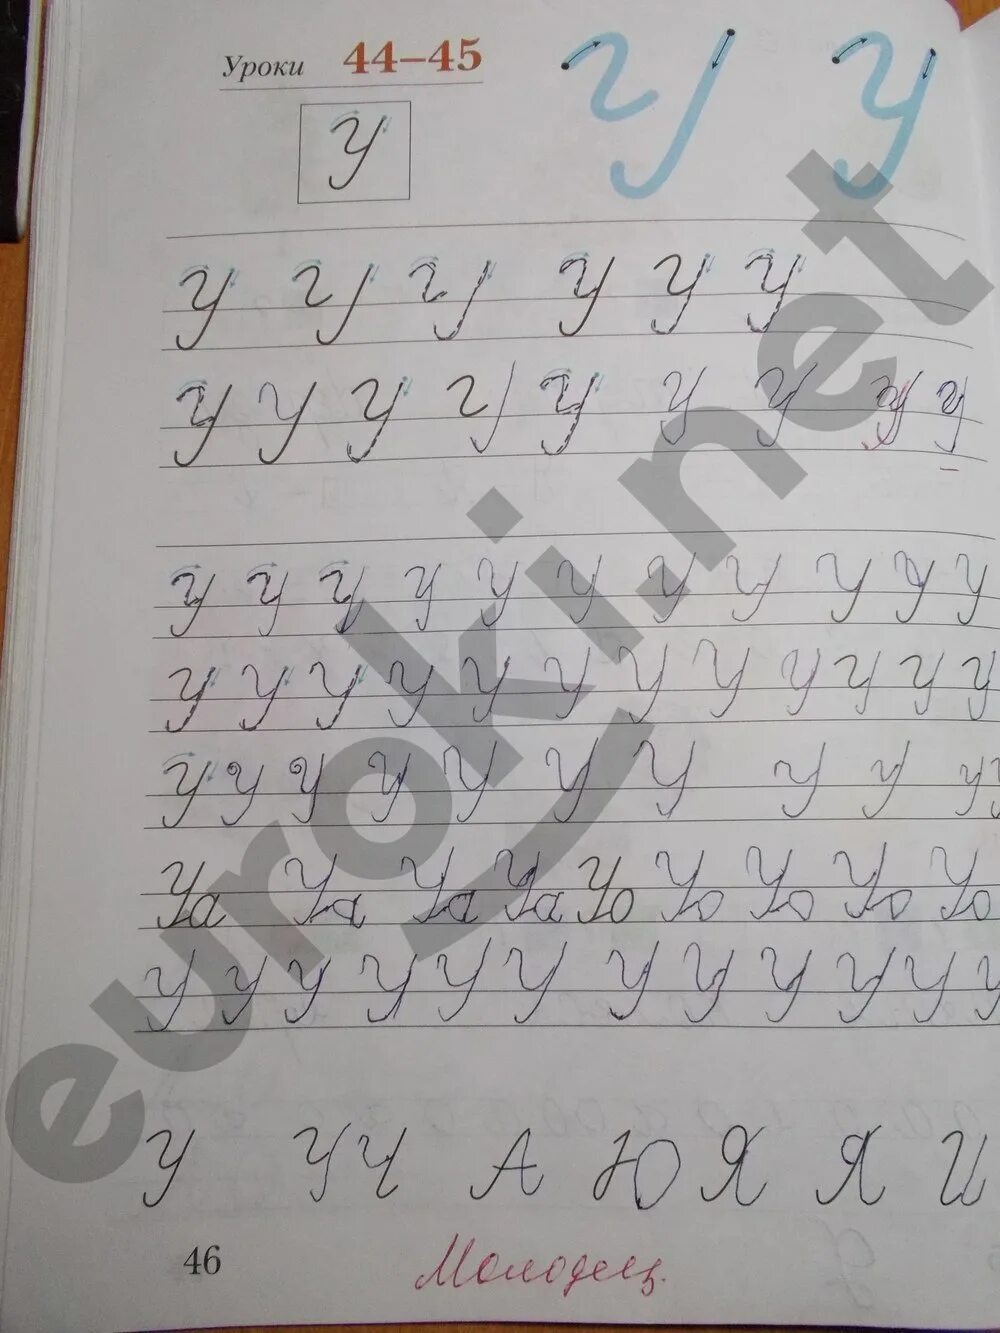 Уроки 44–45
У У
У
У У У У У У
У У У У У У У У У
У У У У У У У У У У У
У У У У У У У У У У У У
У У У У У У У У У У
Уа Уа Уа Уа Уо Уо Уо Уо Уо
У У У У У У У У У У У У
У У Ч А Ю Я Я И
46
Молодец.
euroki.net